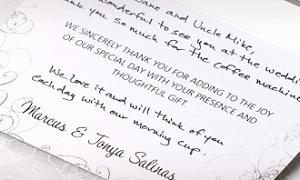 Jane and Uncle Mike,
wonderful to see you at the wedding
you so much for the coffee machine
WE SINCERELY THANK YOU FOR ADDING TO THE JOY
OF OUR SPECIAL DAY WITH YOUR PRESENCE AND
THOUGHTFUL GIFT.
We love it and will think of you
each day with our morning cup.
Marcus & Tonya Salinas